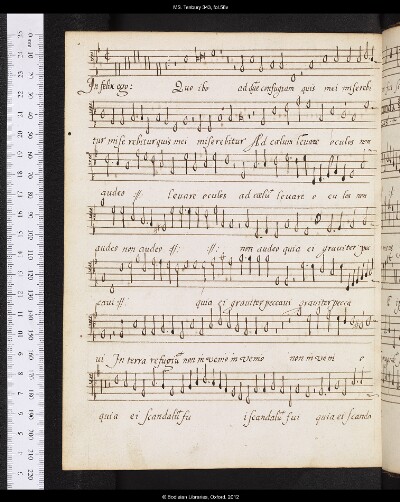 MS. Tenbury 343, fol.58v
Infelix ego: Quo ibo ad quē confugium quis mei miserebi
tur misere rebitur quis mei miserebitur Ad cœlum levare oculos non
audeo ij: levare oculos ad cœlū levare o cu los non
audeo non audeo ij: ij: non audeo quia ei graviter pec
cavi ij: quia ei graviter peccavi graviter pecca
vi In terra refugiū non invenio invenio non inveni o
quia ei scandalū fu i scandalū fui quia ei scanda
© Bodleian Libraries, Oxford, 2012